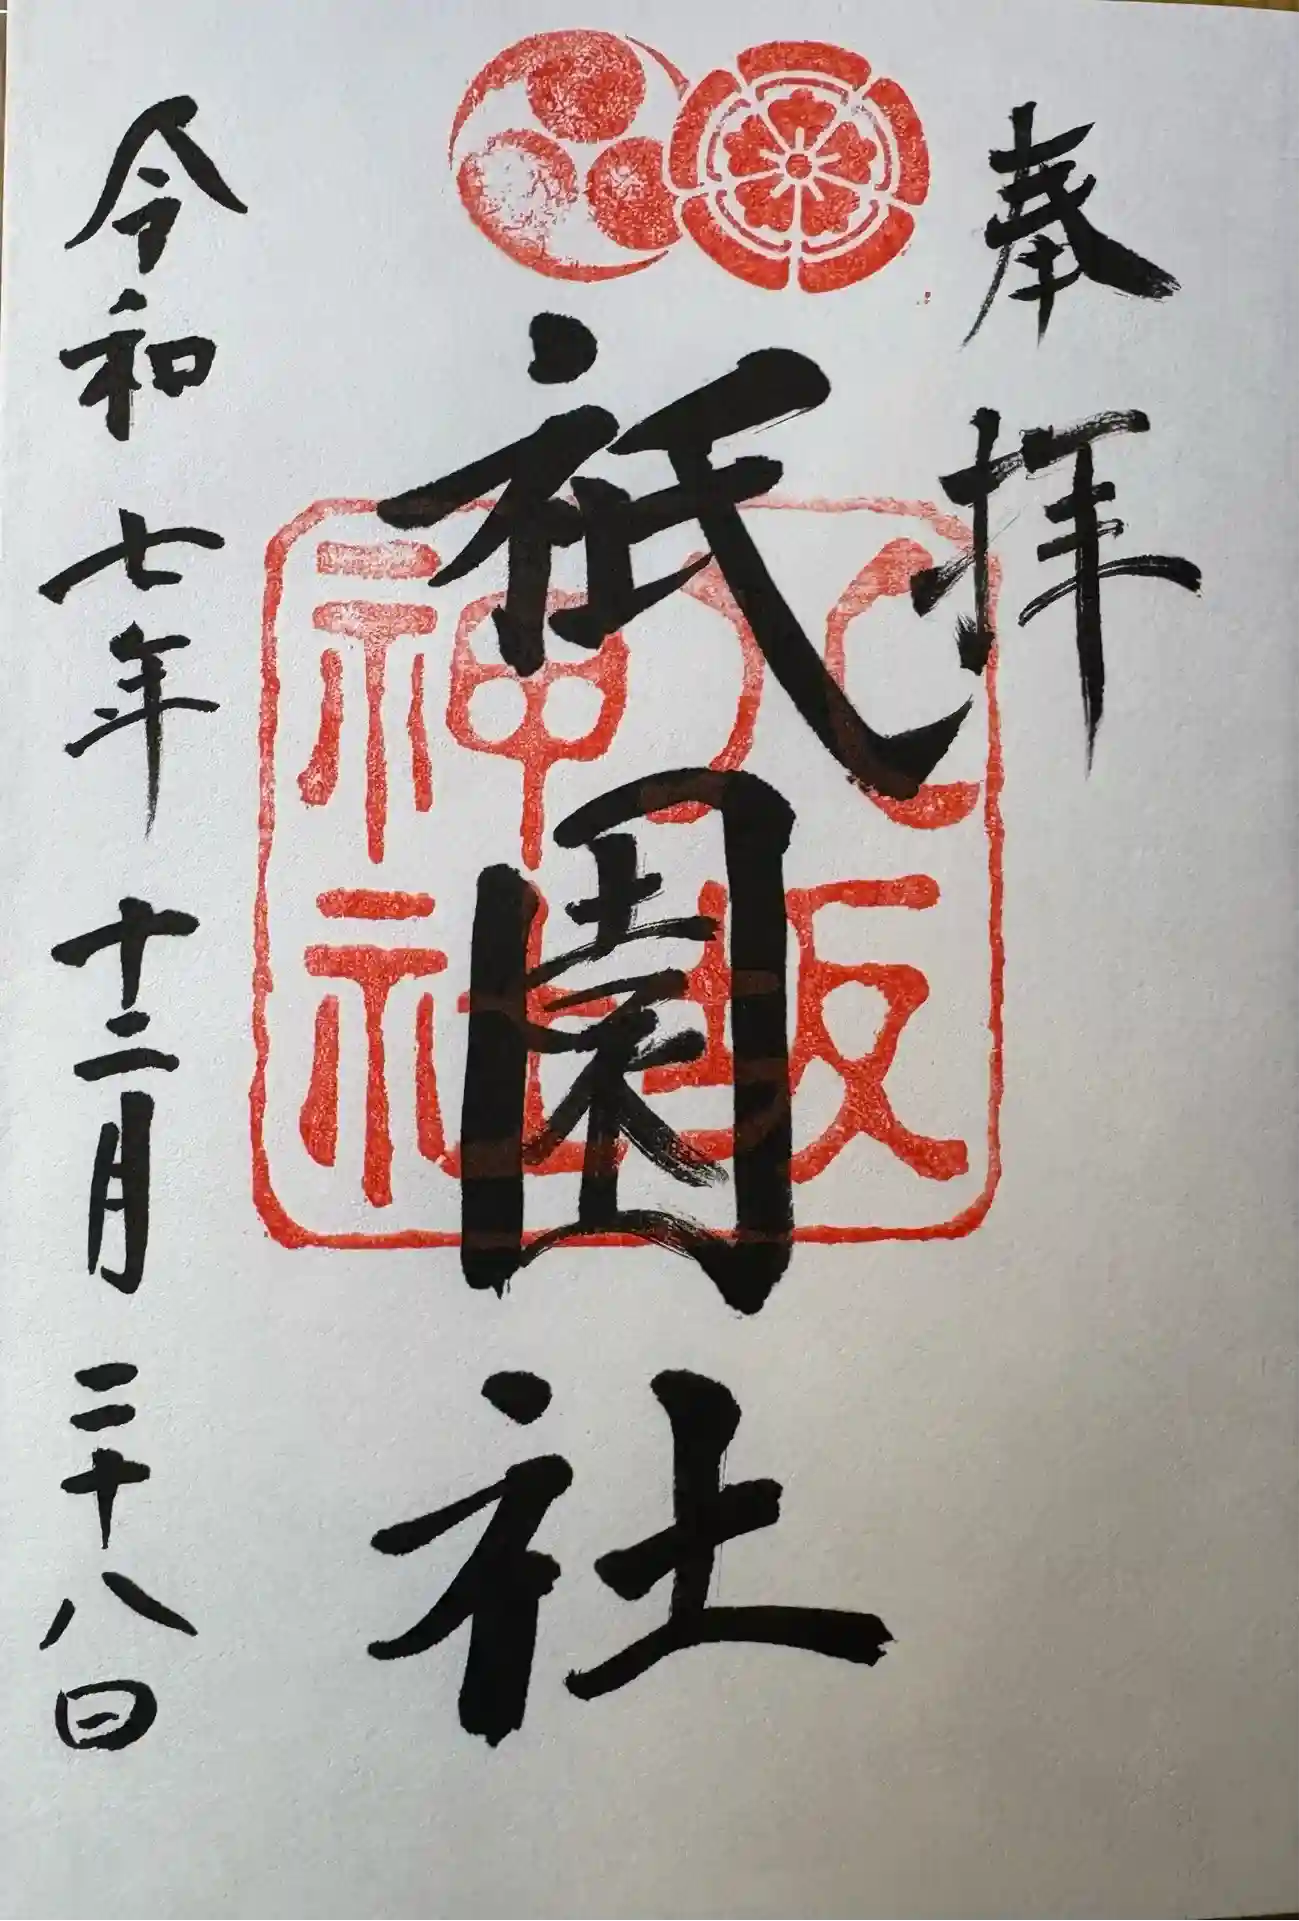 奉拝
祇園社
八坂神社
令和七年十二月二十八日